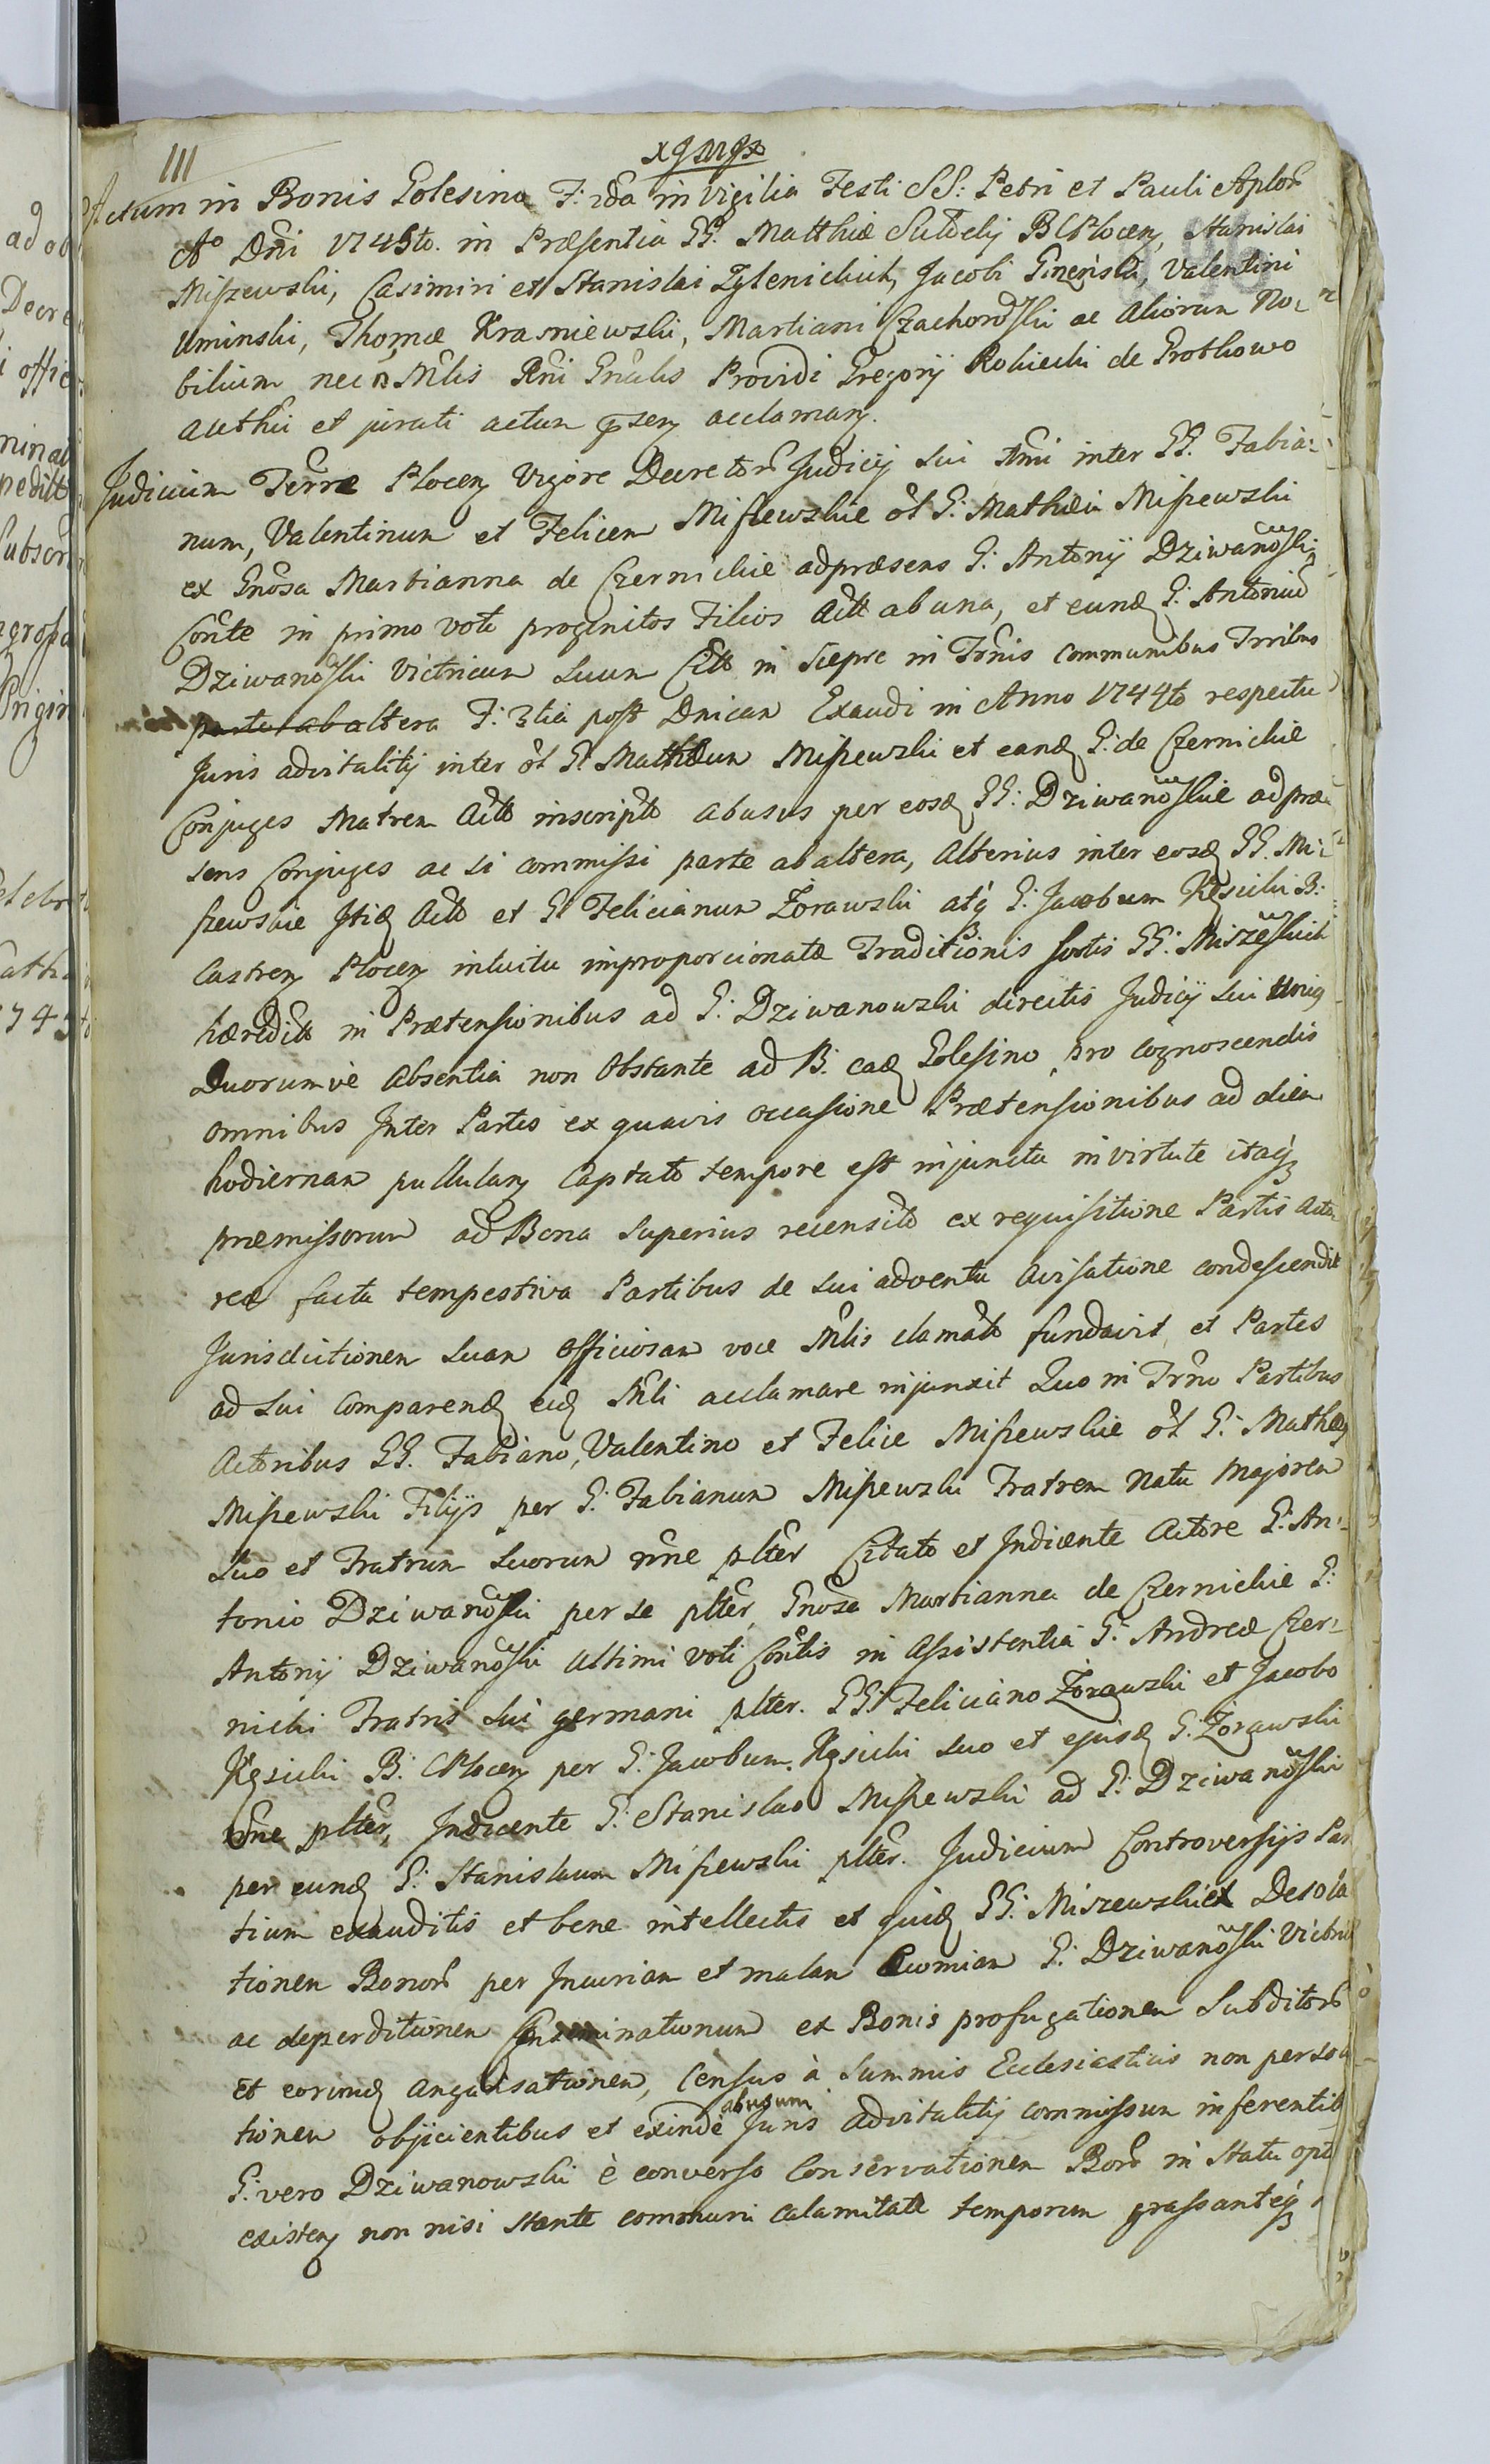 III
Actum in Bonis Golesino F: 2da in Vigilia Festi SS: Petri et Pauli Aplor̃
Ao Dni 1745to. in Præsentia GG. Matthiæ Sudelij BCPlocen, Stanislai
Miszewski, Casimiri et Stanislai Zglenickich, Jacobi Valentini
Uminski, Thomæ Krasniewski, Martiani Czachorowski ac Aliorum No-
bilium nec n Mlis Rni Gnalis Providi Gregorij Rokicki de Brothowo
authen et jurati actum pñsen acclamany.
Judicium Terræ Plocen Vigore Decretor̃ Judicij sui inter GG. Fabia:
num, Valentinum et Felicem Miszewskie ol G: Mathæi Miszewski
ex Gnosa Martianna de Czernickie adpræsens G: Antonij Dziwanowski
Conte in primo voto progenitos Filios Actt ab una, et eund G: Antoniũ
Dziwanowski Victricum suum Citt in Siepre in Trnis communibus Trribus
parte ab altera F: 3tia post Dnicam Exaudi in Anno 1744to respectu
Juris advitalitij inter ol G Mathæum Miszewski et eand G: de Czernickie
Conjuges Matrem Actt inscriptt abusus per eosd GG: Dziwanowskie ad præ
sens Conjuges ac si commissi parte ab altera, Alterius inter eosd GG. Mi:
szewskie Itid Actt et G Felicianum Zorawski atq G: Jacobum Kęsicki B:
Castren Plocen intuitu improporcionatæ Traditionis sortis GG: Miszewskich
hæreditt in Prætensionibus ad G: Dziwanowski directis Judicij sui Unius
Duorumve Absentia non Obstante ad B: ead Golesino pro cognoscendis
omnibus Inter Partes ex quavis occasione Prætensionibus ad diem
hodiernam pullulan Captato tempore est injuncta in virtute itaq
præmissorum ad Bona superius recensita ex requisitione Partis Acto
reæ facta tempestiva Partibus de sui adventu Avisatione condescendit
Jurisdictionem suam Officiosam voce Mlis clamatt fundavit et Partes
ad sui Comparend eid Mli acclamare injunxit Quo in Trno Partibus
Actoribus GG. Fabiano, Valentino et Felice Miszewskie ol G: Mathæi
Miszewski Filijs per G: Fabianum Miszewski Fratrem Natu Majorem
suo et Fratrum suorum nne plter Citato et Indicente Actore G: An:
tonio Dziwanowski per se plter, Gnosa Martianna de Czernickie G:
Antonij Dziwanowski Ultimi voti Contis in Assistentia G: Andreæ Czer:
nicki Fratris sui germani plter. GG: Feliciano Zorawski et Jacobo
Kęsicki B: CPlocen per G: Jacobum Kęsicki suo et ejusd G: Zorawski
nne plter, Indicente G: Stanislao Miszewski ad G: Dziwanowski
per eund G: Stanislaum Miszewski plter. Judicium Controversijs Par
tium exauditis et bene intellectis et quid GG: Miszewskich Desola
tionem Bonor̃ per Incuriam et malam G: Dziwanowski Victrici
ac deperditionem Inseminationum ex Bonis profugationem Subditor̃
Et eorund angarisationem, Census à Summis Ecclesiasticis non persolu
tionem objicientibus et exinde abusum Juris advitalitij commissum inferentib
G: vero Dziwanowski è converso Conservationem Bonor̃ in Statu opt
existen non nisi stante communi Calamitate temporum grassanteq